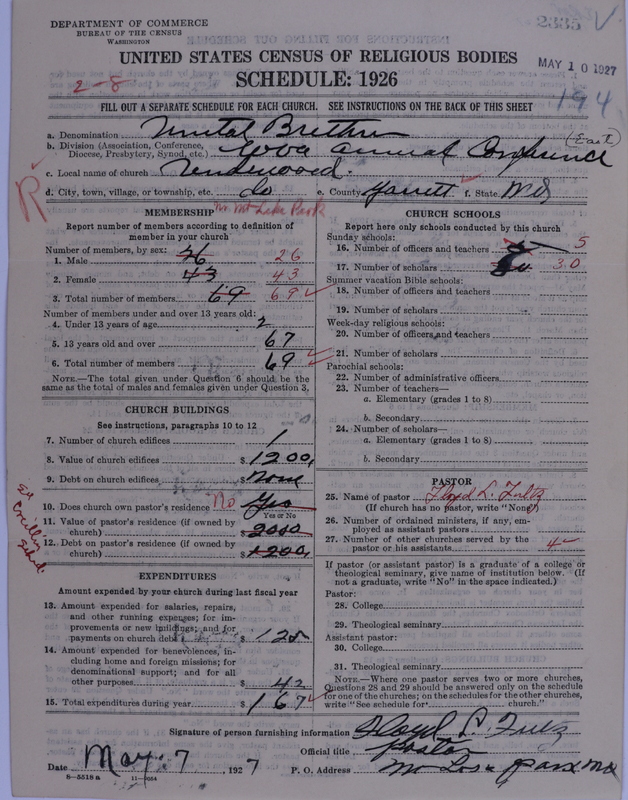 DEPARTMENT OF COMMERCE
BUREAU OF THE CENSUS
WASHINGTON
2335 V
UNITED STATES CENSUS OF RELIGIOUS BODIES
MAY 10 1927
SCHEDULE: 1926
2-8
194
FILL OUT A SEPARATE SCHEDULE FOR EACH CHURCH. SEE INSTRUCTIONS ON THE BACK OF THIS SHEET
a. Denomination United Brethren
b. Division (Association, Conference, Diocese, Presbytery, Synod, etc.) Annual Conference (East)
c. Local name of church Underwood
d. City, town, village, or township, etc. do e. County Garrett f. State Md
R
Mt Lake Park
MEMBERSHIP
Report number of members according to definition of
member in your church
Number of members, by sex:
1. Male 26 26
2. Female 43 43
3. Total number of members 69 69
Number of members under and over 13 years old:
4. Under 13 years of age 2
5. 13 years old and over 67
6. Total number of members 69
NOTE.—The total given under Question 6 should be the
same as the total of males and females given under Question 3.
CHURCH BUILDINGS
See instructions, paragraphs 10 to 12
7. Number of church edifices 1
8. Value of church edifices $ 1200
9. Debt on church edifices $ None
10. Does church own pastor's residence No Yes
Yes or No
11. Value of pastor's residence (if owned by
church) $ 2000
12. Debt on pastor's residence (if owned by
church) $ 1200
EXPENDITURES
Amount expended by your church during last fiscal year
13. Amount expended for salaries, repairs,
and other running expenses; for im-
provements or new buildings; and for
payments on church debt $ 125
14. Amount expended for benevolences, in-
cluding home and foreign missions; for
denominational support; and for all
other purposes $ 42
15. Total expenditures during year $ 167
CHURCH SCHOOLS
Report here only schools conducted by this church
Sunday schools:
16. Number of officers and teachers 5
17. Number of scholars 30
Summer vacation Bible schools:
18. Number of officers and teachers
19. Number of scholars
Week-day religious schools:
20. Number of officers and teachers
21. Number of scholars
Parochial schools:
22. Number of administrative officers
23. Number of teachers—
a. Elementary (grades 1 to 8)
b. Secondary
24. Number of scholars—
a. Elementary (grades 1 to 8)
b. Secondary
PASTOR
25. Name of pastor Floyd L. Fultz
(If church has no pastor, write "None")
26. Number of ordained ministers, if any, em-
ployed as assistant pastors
27. Number of other churches served by the
pastor or his assistants 4
If pastor (or assistant pastor) is a graduate of a college or
theological seminary, give name of institution below. (If
not a graduate, write "No" in the space indicated.)
Pastor:
28. College
29. Theological seminary
Assistant pastor:
30. College
31. Theological seminary
NOTE.—Where one pastor serves two or more churches,
Questions 28 and 29 should be answered only on the schedule
for one of the churches; on the schedules for the other churches,
write "See schedule for church."
Signature of person furnishing information Floyd L. Fultz
Official title Pastor
Date May 7, 1927 P. O. Address Park Md
8—5518 a 11—9054